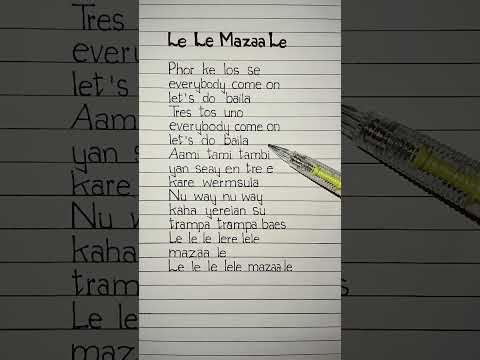 Le Le Mazaa Le
Phor ke los se
everybody come on
let's do baila
Tres tos uno
everybody come on
let's do baila
Aami tami tambi
yan seay en tre e
kare wermsula
Nu way nu way
kaha yereian su
trampa trampa baes
Le le le lere lele
mazaa le
Le le le lele mazaa le